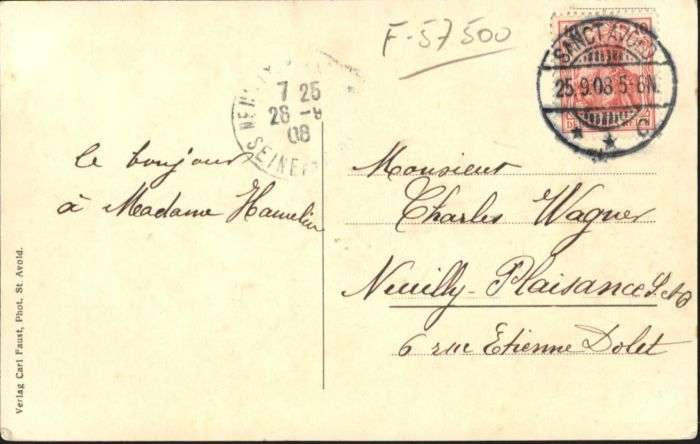 F-57500
SANCT AVOLD
25.9.08 5-6N.
* * C
7 25
26 -9
08
SEINE
le bonjour
à Madame Hamelin
Monsieur
Charles Wagner
Neuilly-Plaisance S.&O
6 rue Etienne Dolet
Verlag Carl Faust, Phot. St Avold.